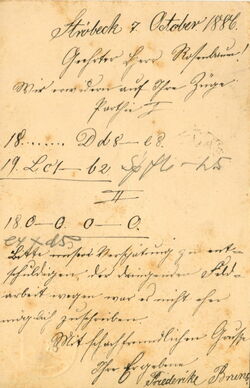 Ströbeck 7. October 1886.
Geehrter Herr Rosenbaum!
Wir erwidern auf Ihre Züge
Parthie I
18....... Dd8-e8.
19. Lc1-b2.
II
18. 0-0. 0-0.
e4xd5
Bitte unsere Verspätung zu ent-
schuldigen, der dringenden Feld-
arbeit wegen war es nicht eher
möglich zuschreiben.
Mit schachfreundlichem Gruße
Ihre Ergebene
Friederike